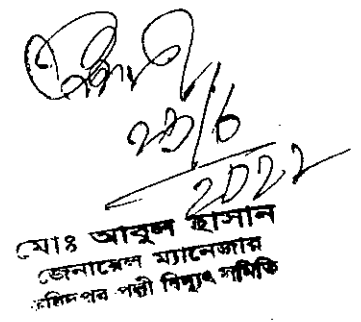 2022
মোঃ আবুল হাসান
জেনারেল ম্যানেজার
ফরিদপুর পল্লী বিদ্যুৎ সমিতি